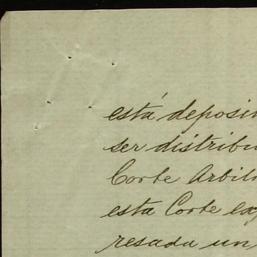 está deposi
ser distribu
Corte Arbit
esta Corte ex
resada un